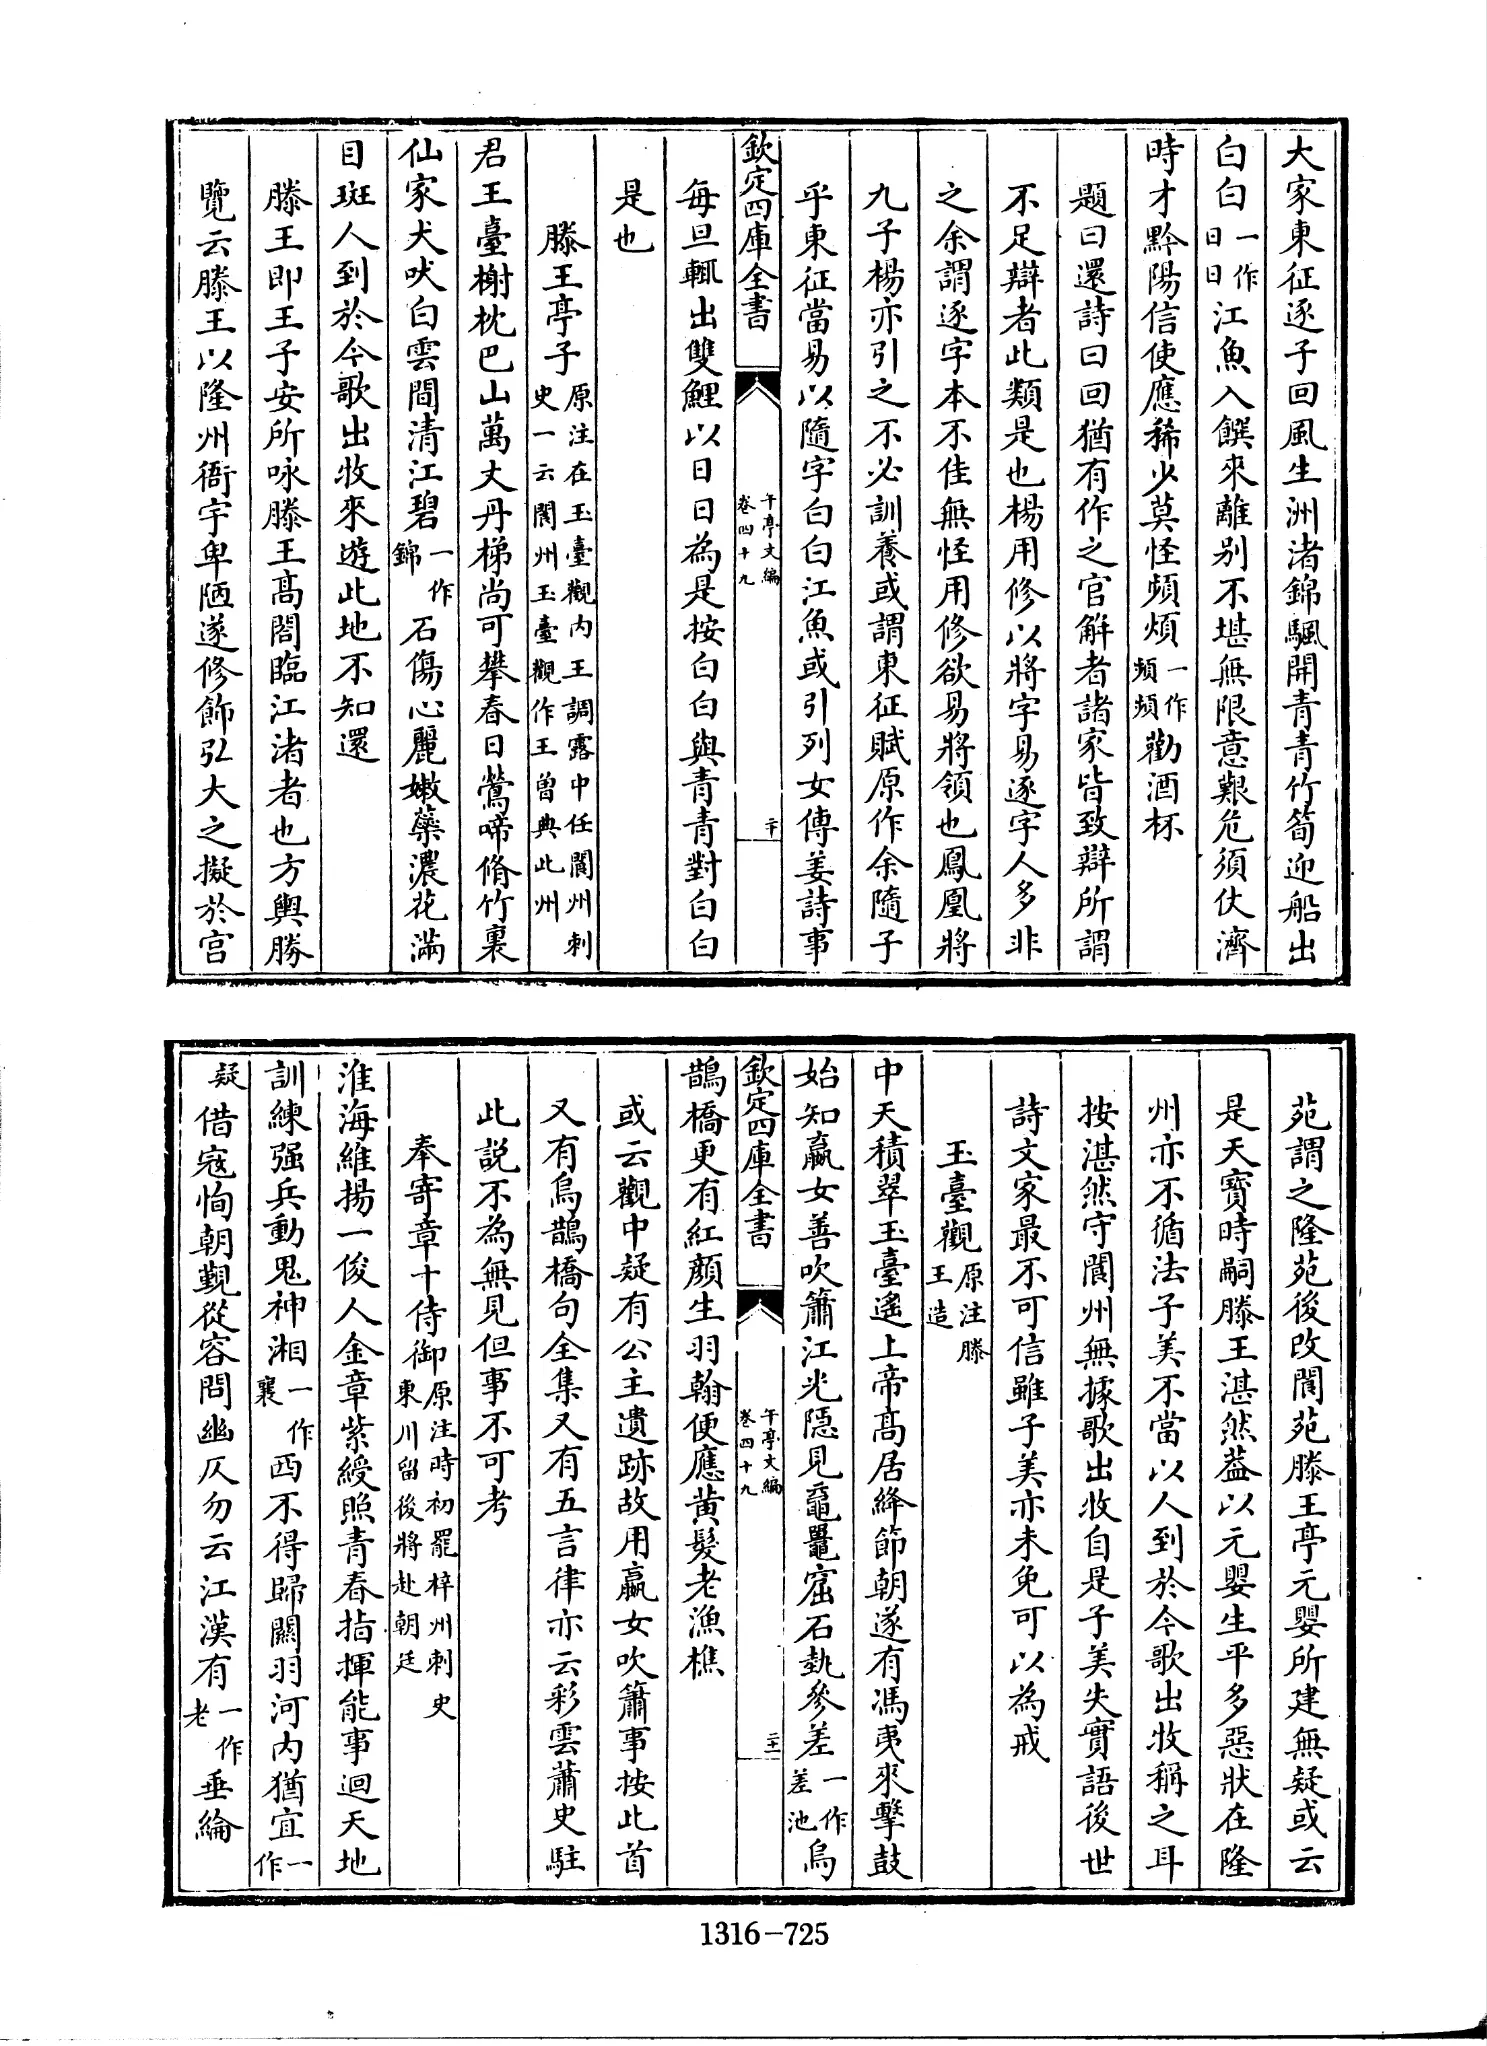 大家東征逐子回風生洲渚錦颿開青青竹筍迎船出
白白一作日日江魚入饌來離別不堪無限意艱危須仗濟
時才黔陽信使應稀少莫怪頻煩一作頻頻勸酒杯
題曰還詩曰回猶有作之官解者諸家皆致辯所謂
不足辯者此類是也楊用修以將字易逐字人多非
之余謂逐字本不佳無怪用修欲易將領也鳳凰將
九子楊亦引之不必訓養或謂東征賦原作余隨子
乎東征當易以隨字白白江魚或引列女傳姜詩事
欽定四庫全書
午亭文編
卷四十九
二十
每旦輒出雙鯉以日日為是按白白與青青對白白
是也
滕王亭子原注在玉臺觀內王調露中任閬州刺史一云閬州玉臺觀作王曾典此州
君王臺榭枕巴山萬丈丹梯尚可攀春日鶯啼脩竹裏
仙家犬吠白雲間清江碧一作錦石傷心麗嫩蘂濃花滿
目斑人到於今歌出牧來遊此地不知還
滕王即王子安所咏滕王髙閣臨江渚者也方輿勝
覽云滕王以隆州衙宇卑陋遂修飾弘大之擬於宫
苑謂之隆苑後改閬苑滕王亭元嬰所建無疑或云
是天寶時嗣滕王湛然葢以元嬰生平多惡狀在隆
州亦不循法子美不當以人到於今歌出牧稱之耳
按湛然守閬州無據歌出牧自是子美失實語後世
詩文家最不可信雖子美亦未免可以為戒
玉臺觀原注滕王造
中天積翠玉臺遙上帝髙居絳節朝遂有馮夷來擊鼓
始知嬴女善吹簫江光隱見黿鼉窟石埶參差一作差池烏
欽定四庫全書
午亭文編
卷四十九
二十一
鵲橋更有紅顏生羽翰便應黄髮老漁樵
或云觀中疑有公主遺跡故用嬴女吹簫事按此首
又有烏鵲橋句全集又有五言律亦云彩雲蕭史駐
此説不為無見但事不可考
奉寄章十侍御原注時初罷梓州刺史東川留後將赴朝廷
淮海維揚一俊人金章紫綬照青春指揮能事迴天地
訓練强兵動鬼神湘一作襄西不得歸關羽河内猶宜一作
疑借寇恂朝覲從容問幽仄勿云江漢有一作老垂綸
1316-725